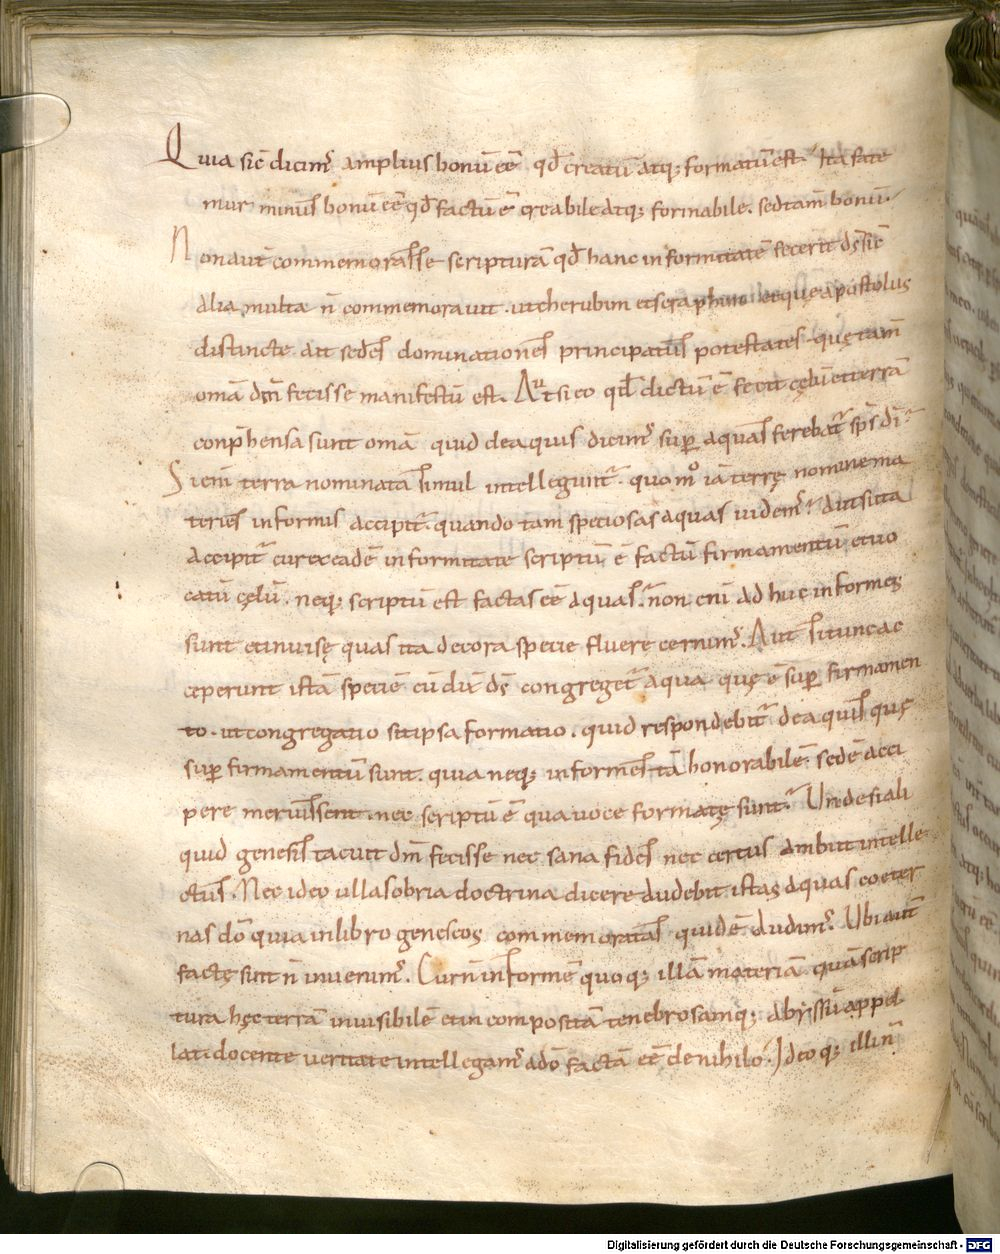 Quia sic̄ dicim᷒ amplius bonū eē qd̄ creatū atq; formatū est. Ita fate
mur minus bonū eē qd̄ factū ē creabile atq; formabile. sed tam̄ bonū.
Non aut̄ commemorasse scripturā qd̄ hanc informitatē fecerit d̄s sic̄
alia multa n̄ commemorauit. ut cherubim et seraphim et quę apostolus
distincte ait sedes dominationes principatus potestates. quę tam̄
om̄a dm̄ fecisse manifestū est. Aut si eo qd̄ dictū ē fecit cęlū et terrā
conp̄hensa sunt om̄a quid de aquis dicim᷒ sup̄ aquas ferebat᷒ sps̄ di.
Si eni terra nominata simul intelligunt᷒. quo m̊ iā terrę nomine ma
teries informis accipit᷒. quando tam speciosas aquas uidem᷒. Aut si ita
accipit᷒ cur ex eadē informitate scriptū ē factū firmamentū et uo
catū cęlū. neq; scriptū est factas eē aquas. n̄ non eni adhuc informes
sunt et inuisę quas ita decora specie fluere cernim᷒. Aut si tunc ac
ceperunt istā speciē cū dix̄ d̄s congreget᷒ aqua quę ē sup̄ firmamen
to. ut congregatio sit ipsa formatio. quid respondebit᷒ de aquis quę
sup̄ firmamentū sunt. quia neq; informes tā honorabilē sedē acci
pere meruissent. nec scriptū ē qua uoce formatę sunt. Unde si ali
quid genesis tacuit dm̄ fecisse nec sana fides nec certus ambit intelle
ctus. Nec ideo ulla sobria doctrina dicere audebit istas aquas coęter
nas do quia in libro geneseos commemoratas quidē audim᷒. Ubi aut̄
factę sint n̄ inuenim᷒. Cur n̄ informē quoq; illā materiā quā scrip
tura hęc terrā inuisibilē et incompositā tenebrosamq; abyssū appel
lat. docente ueritate intellegam᷒ a do factā eē de nihilo. Ideoq; illi n̄
Digitalisierung gefördert durch die Deutsche Forschungsgemeinschaft - DFG